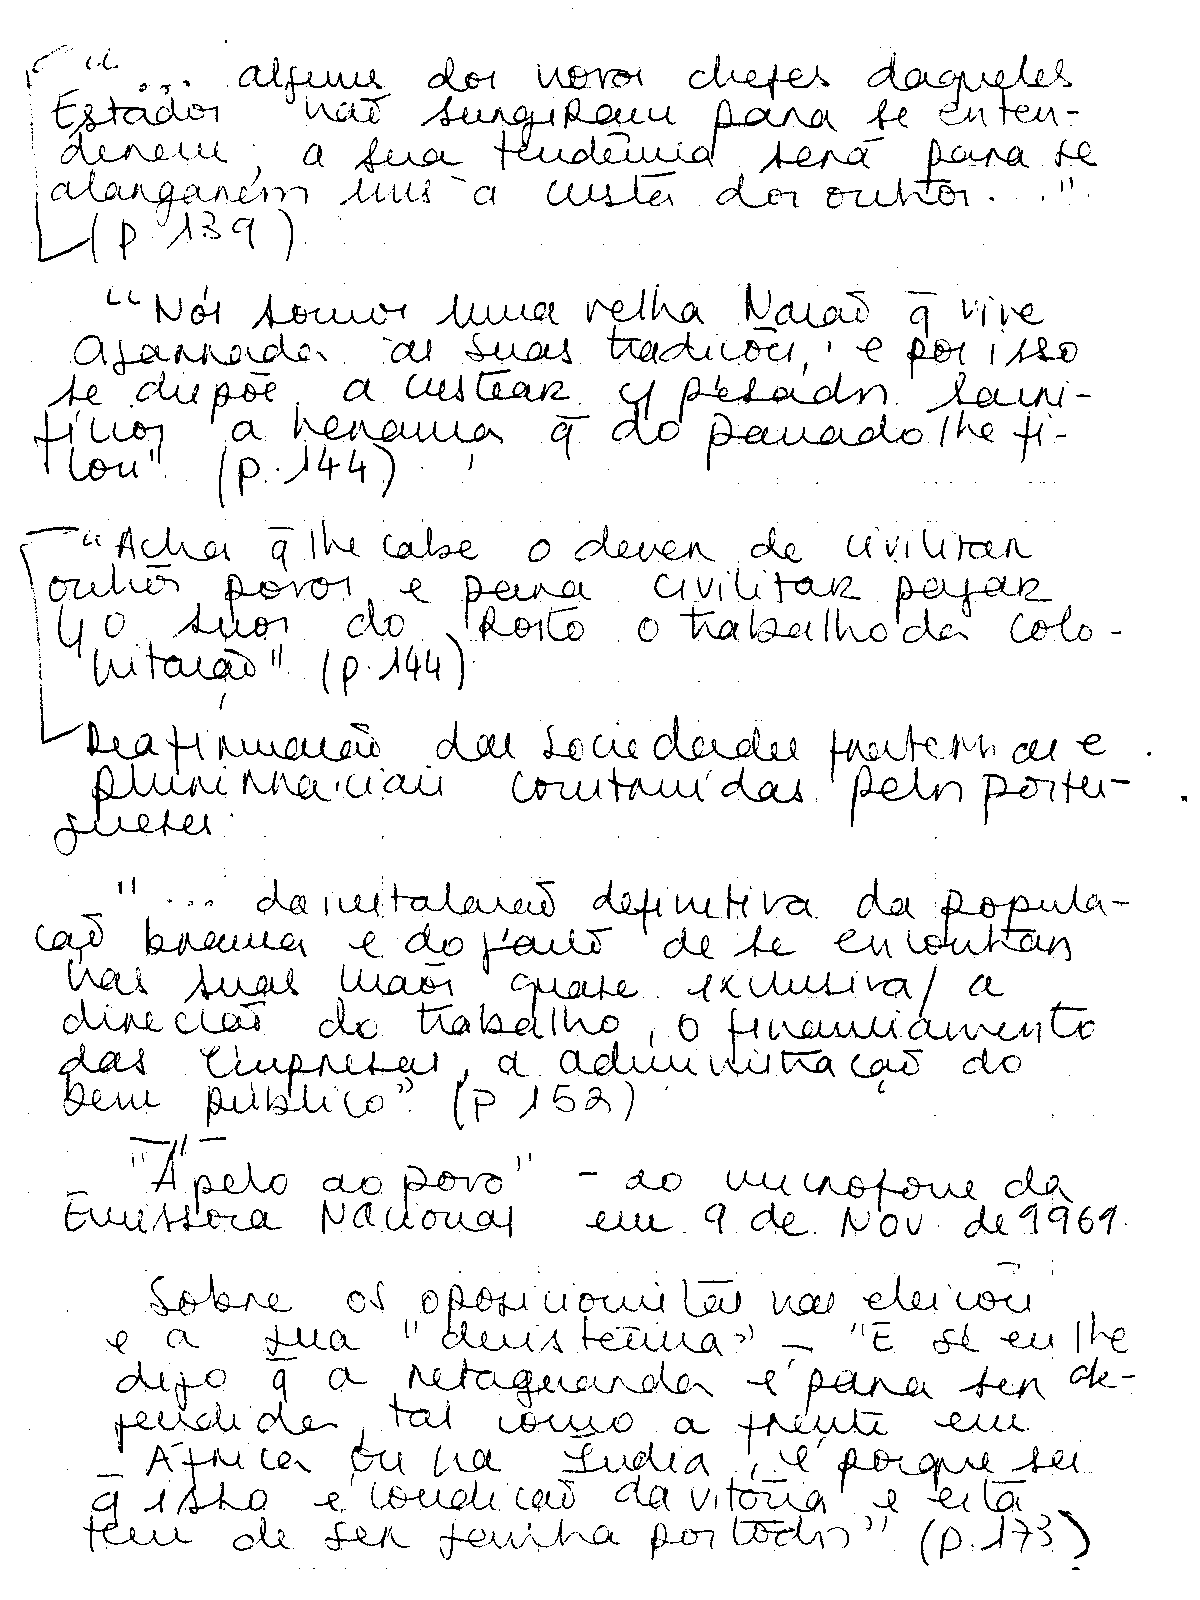 "... alguns dos novos chefes daqueles
Estados não surgiram para se enten-
derem, a sua tendência será para se
alargarem uns à custa dos outros..."
(p. 139)
"Nós somos uma velha Nação q̄ vive
agarrada às suas tradições, e por isso
se dispõe a custear c/ pesados sacri-
fícios a herança q̄ do passado lhe fi-
cou" (p. 144)
"Acha q̄ lhe cabe o dever de civilizar
outros povos e para civilizar pagar
c/ o suor do rosto o trabalho da colo-
nização" (p. 144)
Reafirmação das sociedades fraternas e
plurirraciais construídas pelos portu-
gueses.
"... da instalação definitiva da popula-
ção branca e do facto de se encontrar
nas suas mãos quase exclusiva/ a
direcção do trabalho, o financiamento
das empresas, a administração do
bem público" (p 152)
"Apelo ao povo" - ao microfone da
Emissora Nacional em 9 de Nov. de 1969.
Sobre os oposicionistas nas eleições
e a sua "desistência" - "E se eu lhe
digo q̄ a retaguarda é para ser de-
fendida, tal como a frente em
África ou na Índia, é porque sei
q̄ isso é condição da vitória e esta
tem de ser ganha por todos" (p. 173)